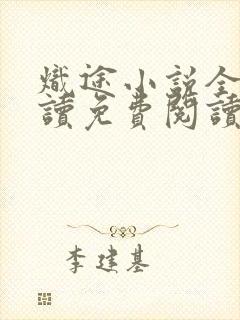 熾途小説全
讀免費閱讀
李建基